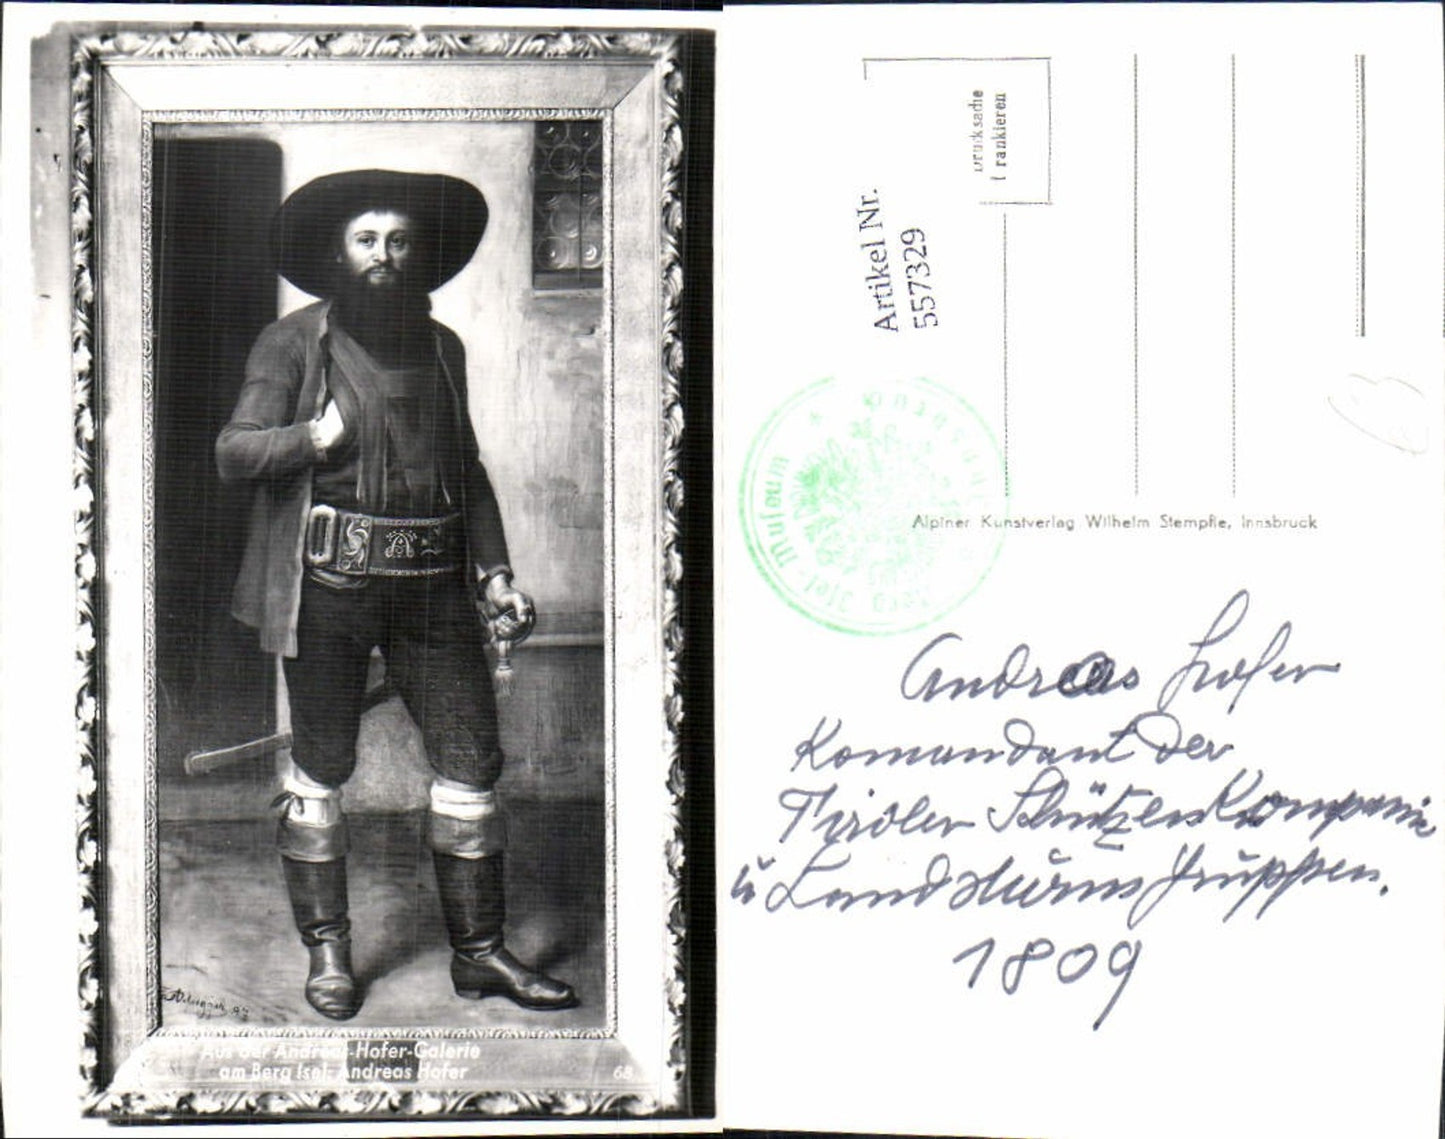 Aus der Andreas-Hofer-Galerie
am Berg Isel: Andreas Hofer
68
Drucksache
frankieren
Artikel Nr.
557329
Berg Isel-Museum
Alpiner Kunstverlag Wilhelm Stempfle, Innsbruck
Andreas Hofer
Komandant der
Tiroler Schützenkompanie
u Landsturmgruppen.
1809